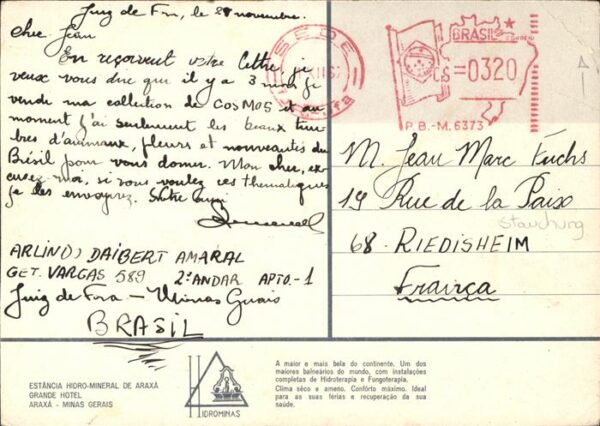 Juiz de Fora, le 28 novembre.
Cher Jean
En reçoevent votre lettre, je
veux vous dire que il y a 3 mois je
vende ma collection de COSMOS et au
moment j'ai seulement les beaux tim-
bres d'animaux, fleurs et nouveautés du
Brésil pour vous donner. Mon cher, ex-
cusez-moi, si vous voulez ces thematiques
je les envoyrez. Votre ami
ARLINDO DAIBERT AMARAL
GET. VARGAS 589 2º ANDAR APTO.-1
Juiz de Fora — Minas Gerais
BRASIL
SEDE
BRASIL
CORREIO
CR$ =0320
P.B.-M.6373
M. Jean Marc Fuchs
19 Rue de la Paix
Stauchung
68 - RIEDISHEIM
França
ESTÂNCIA HIDRO-MINERAL DE ARAXÁ
GRANDE HOTEL
ARAXÁ - MINAS GERAIS
HIDROMINAS
A maior e mais bela do continente. Um dos
maiores balneários do mundo, com instalações
completas de Hidroterapia e Fungoterapia.
Clima sêco e ameno. Confôrto máximo. Ideal
para as suas férias e recuperação da sua
saúde.